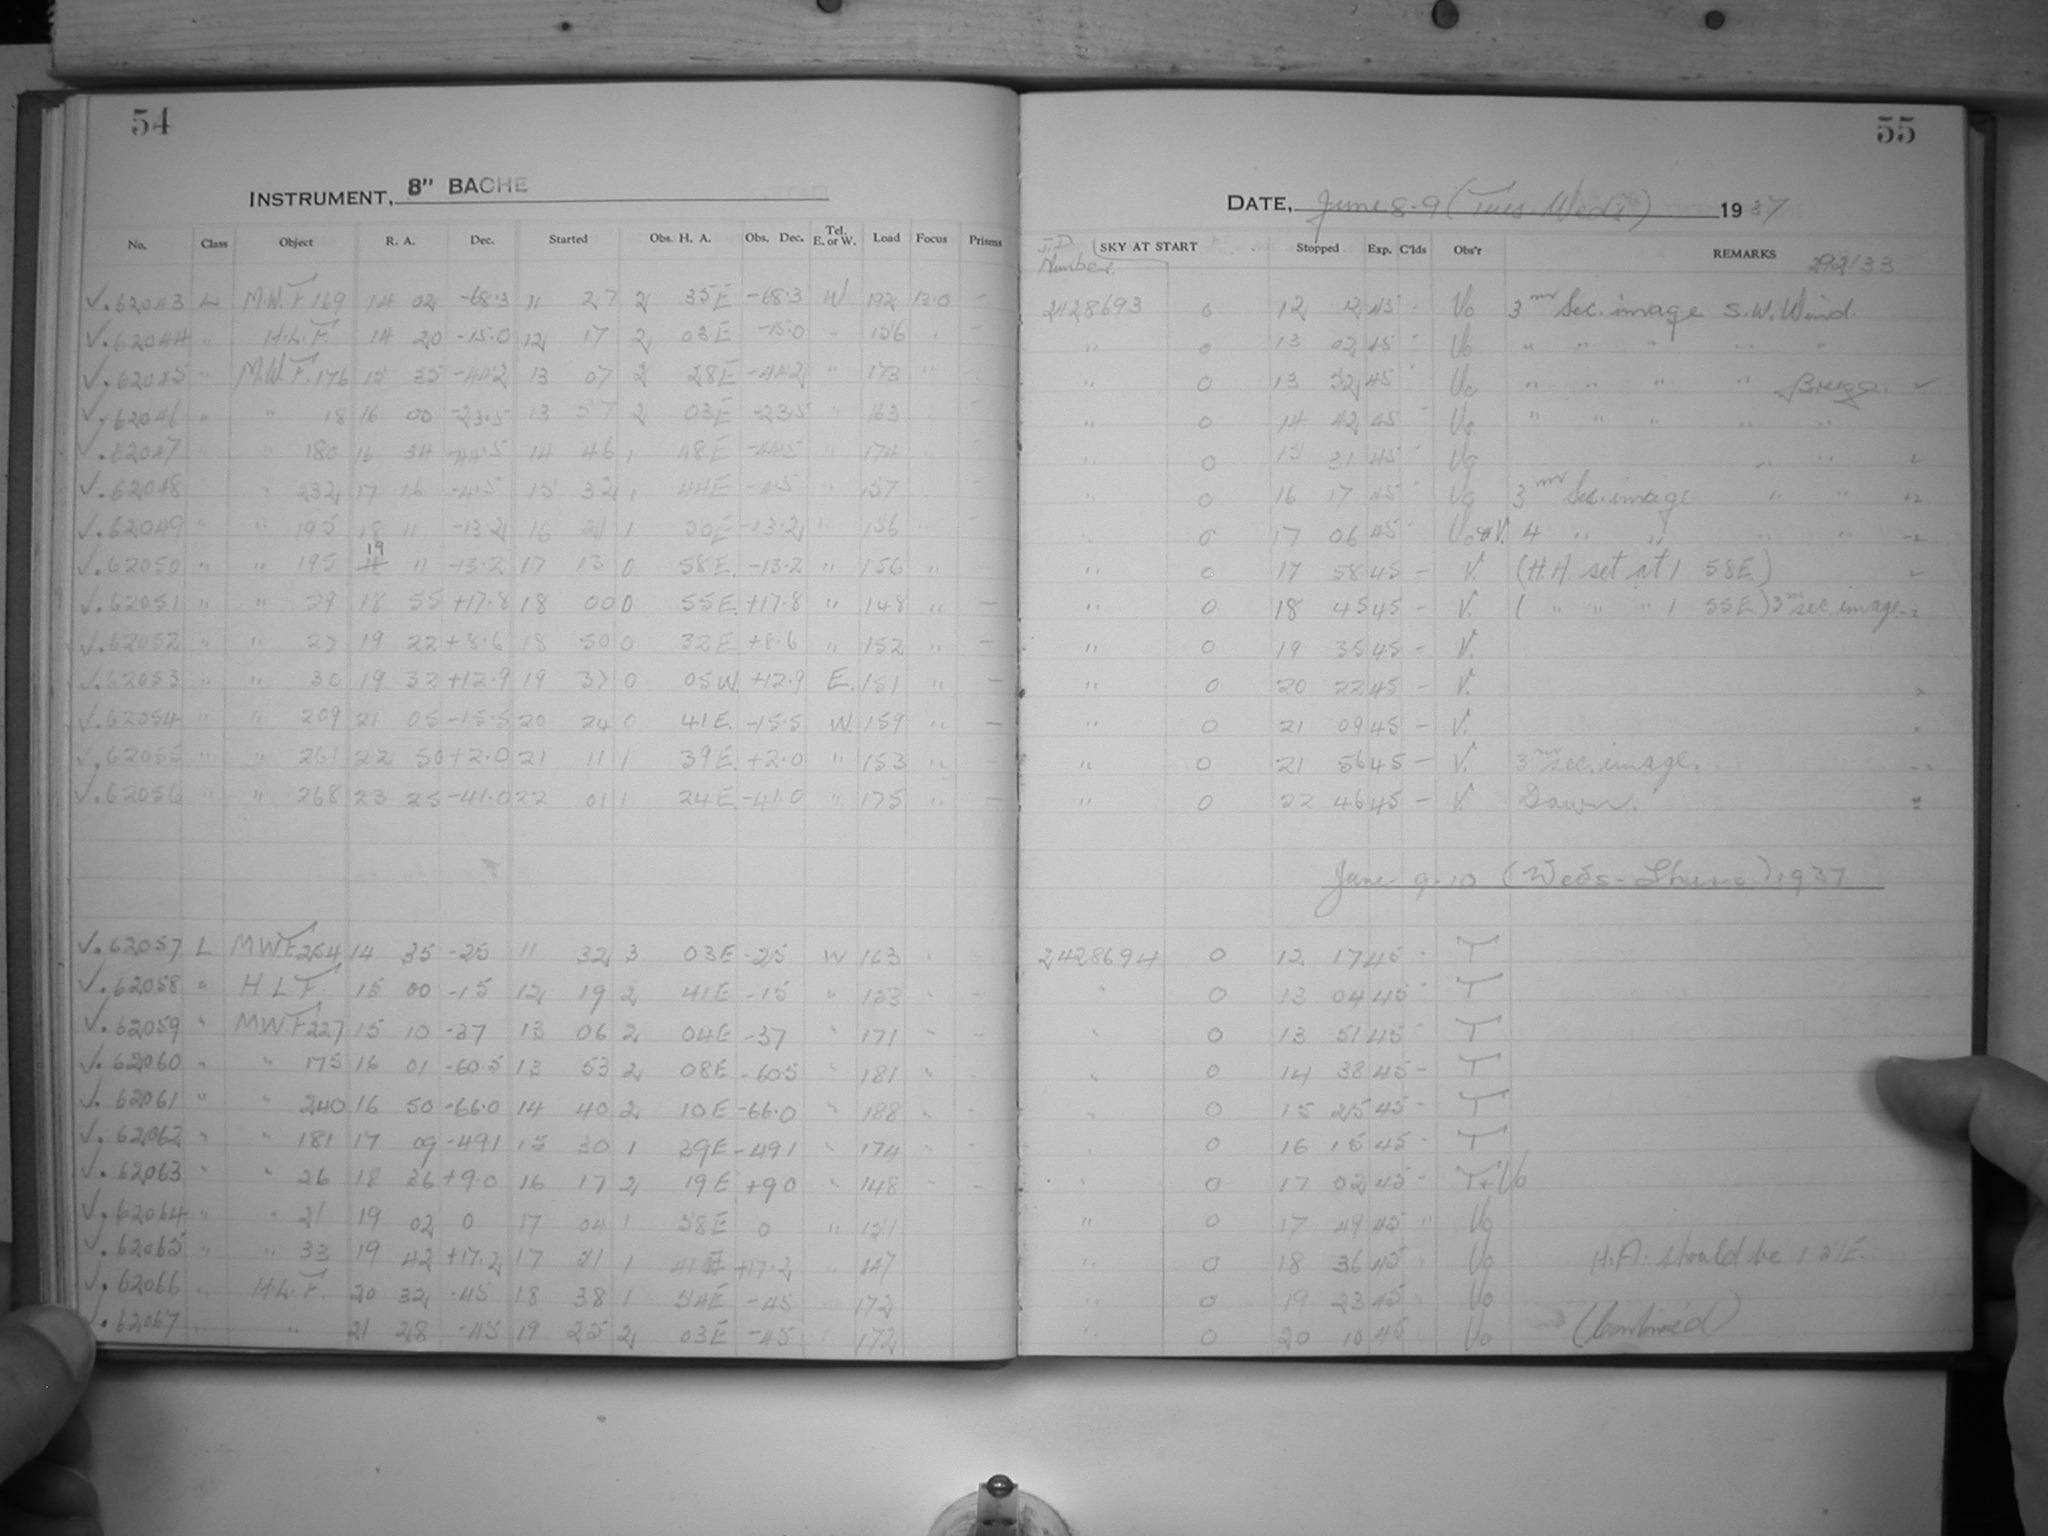 54
INSTRUMENT, 8" BACHE
No. Class Object R. A. Dec. Started Obs. H. A. Obs. Dec. Tel. E. or W. Load Focus Prisms
√. 62043 L M.W.F 169 14 02 -68.3 11 27 2 35E -68.3 W 192 13.0 -
√. 62044 " H.L.F. 14 20 -15.0 12 17 2 03E -15.0 " 156
√. 62045 " M.W.F. 176 15 35 -44.2 13 07 2 28E -44.2 " 173 "
√. 62046 " " 18 16 00 -23.5 13 57 2 03E -23.5 " 163
√. 62047 " " 180 16 34 -44.5 14 46 1 48E -44.5 " 174
√. 62048 " 232 17 16 -4.5 15 32 1 44E -4.5 " 157
√. 62049 " " 195 18 11 -13.2 16 21 1 50E -13.2 " 156
√. 62050 " " 195 19 11 -13.2 17 13 0 58E. -13.2 " 156 "
√. 62051 " " 29 18 55 +17.8 18 00 0 55E. +17.8 " 148 " -
√. 62052 " " 27 19 22 +8.6 18 50 0 32E +8.6 " 152 " -
√. 62053 " " 30 19 32 +12.9 19 37 0 05W. +12.9 E. 151 " -
√. 62054 " " 209 21 05 -15.5 20 24 0 41E. -15.5 W. 159 " -
√. 62055 " " 261 22 50 +2.0 21 11 1 39E. +2.0 " 153 " -
√. 62056 " " 268 23 25 -41.0 22 01 1 24E. -41.0 " 175 " -
√. 62057 L MWF 254 14 35 -25 11 32 3 03E -25 W 163
√. 62058 " H L F. 15 00 -15 12 19 2 41E -15 " 153
√. 62059 " MWF 227 15 10 -37 13 06 2 04E -37 " 171
√. 62060 " " 175 16 01 -60.5 13 53 2 08E -60.5 " 181
√. 62061 " " 240 16 50 -66.0 14 40 2 10E -66.0 " 188
√. 62062 " " 181 17 09 -491 15 30 1 39E -491 " 174
√. 62063 " " 26 18 36 +9.0 16 17 2 19E +90 " 148
√. 62064 " " 21 19 02 0 17 04 1 58E 0 " 151
√. 62065 " " 33 19 42 +17.2 17 51 1 41E +17.2 " 147
√. 62066 " H.L.F. 20 32 -45 18 38 1 54E -45 172
√. 62067 " 21 28 -45 19 25 2 03E -45 172
55
DATE, June 8-9 (Tues-Wed's) 1937
J.D. Number. SKY AT START Stopped Exp. C'lds Obs'r REMARKS 292133
2428693 0 12 12 45 Vo 3 mr Sec. image S.W. Wind.
" 0 13 02 45 Vo " " " " "
" 0 13 52 45 Vo " " " " Breeze. ✓
" 0 14 42 45 Vo " " " " "
" 0 15 31 45 Vo " "
" 0 16 17 45 Vo 3 mr Sec. image " "
" 0 17 06 45 Vo & V. 4 " " " "
" 0 17 58 45 - V. (H.A. set at 1 58E.)
" 0 18 45 45 - V. ( " " " 1 55E.) 3 mr sec. image
" 0 19 35 45 - V.
" 0 20 22 45 - V.
" 0 21 09 45 - V.
" 0 21 56 45 - V. 3 mr sec. image.
" 0 22 46 45 - V. Dawn.
June 9-10 (Weds-Thurs) 1937
2428694 0 12 17 45 T
" 0 13 04 45 T
0 13 51 45 T
" 0 14 38 45 - T
0 15 25 45 - T
0 16 15 45 - T
0 17 02 45 - T+Vo
" 0 17 49 45 " Vo
" 0 18 36 45 " Vo H.A. should be 1 51E.
" 0 19 23 45 Vo
" 0 20 10 45 Vo (Continued)